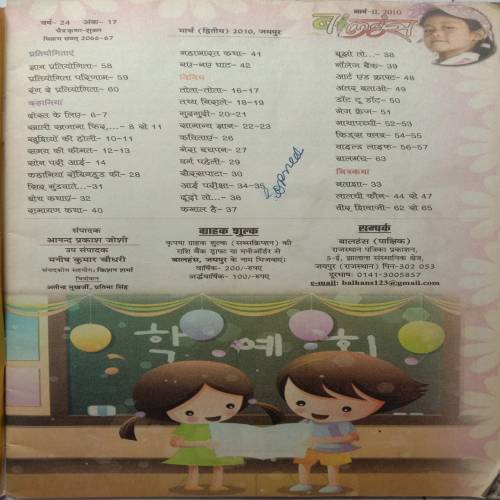 वर्ष- 24 अंक- 17
चैत्र कृष्ण-शुक्ल
विक्रम संवत् 2066-67
मार्च (द्वितीय) 2010, जयपुर
मार्च-II, 2010
बालहंस
प्रतियोगिताएं
ज्ञान प्रतियोगिता- 58
प्रतियोगिता परिणाम- 59
रंग दे प्रतियोगिता- 60
कहानियां
दोस्त के लिए- 6-7
खुशियों की होली- 10-11
समय की कीमत- 12-13
सोन परी आई- 14
कहानियां रॉबिनहुड की- 28
सिर मुंडवाते...-31
बोध कथाएं- 32
रामायण कथा- 40
महाभारत कथा- 41
नए-नए घाट- 42
विविध
तोता-तोता- 16-17
तथ्य निराले- 18-19
गुदगुदी- 20-21
सामान्य ज्ञान- 22-23
कविताएं- 26
मेरा बचपन- 27
वर्ग पहेली- 29
सैरसपाटा- 30
आई परीक्षा- 34-35
ढूंढ़ो तो...- 36
कमाल है- 37
बूझो तो...- 38
नॉलेज बैंक- 39
आर्ट एंड क्राफ्ट- 48
अंतर बताओ- 49
डॉट टू डॉट- 50
मेज क्रेज- 51
माथापच्ची- 52-53
किड्स क्लब- 54-55
वाइल्ड लाइफ- 56-57
बालमंच- 63
चित्रकथा
बताशा- 33
लालची कौन- 44 से 47
वीर शिवाजी- 62 से 65
संपादक
आनन्द प्रकाश जोशी
उप संपादक
मनीष कुमार चौधरी
संपादकीय सहयोग: किशन शर्मा
चित्रांकन
असीत्द मुखर्जी, प्रतिमा सिंह
ग्राहक शुल्क
कृपया ग्राहक शुल्क (सब्सक्रिप्शन) की
राशि बैंक ड्राफ्ट या मनीऑर्डर से
बालहंस, जयपुर के नाम भिजवाएं।
वार्षिक- 200/-रुपए
अर्द्धवार्षिक- 100/-रुपए
सम्पर्क
बालहंस (पाक्षिक)
राजस्थान पत्रिका प्रकाशन,
5-ई, झालाना संस्थानिक क्षेत्र,
जयपुर (राजस्थान) पिन-302 053
दूरभाष: 0141-3005857
e-mail: balhans123@gmail.com
학 예 회